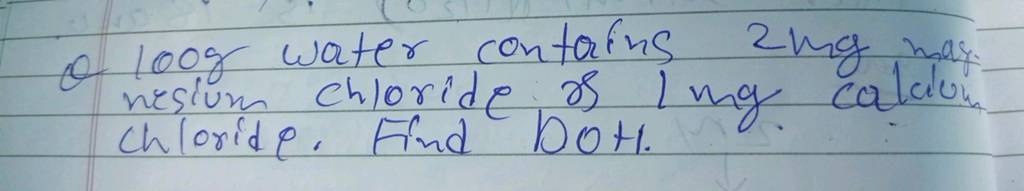 Q 100g water contains 2mg mag-
nesium chloride & 1 mg calcium
chloride. Find DOH.